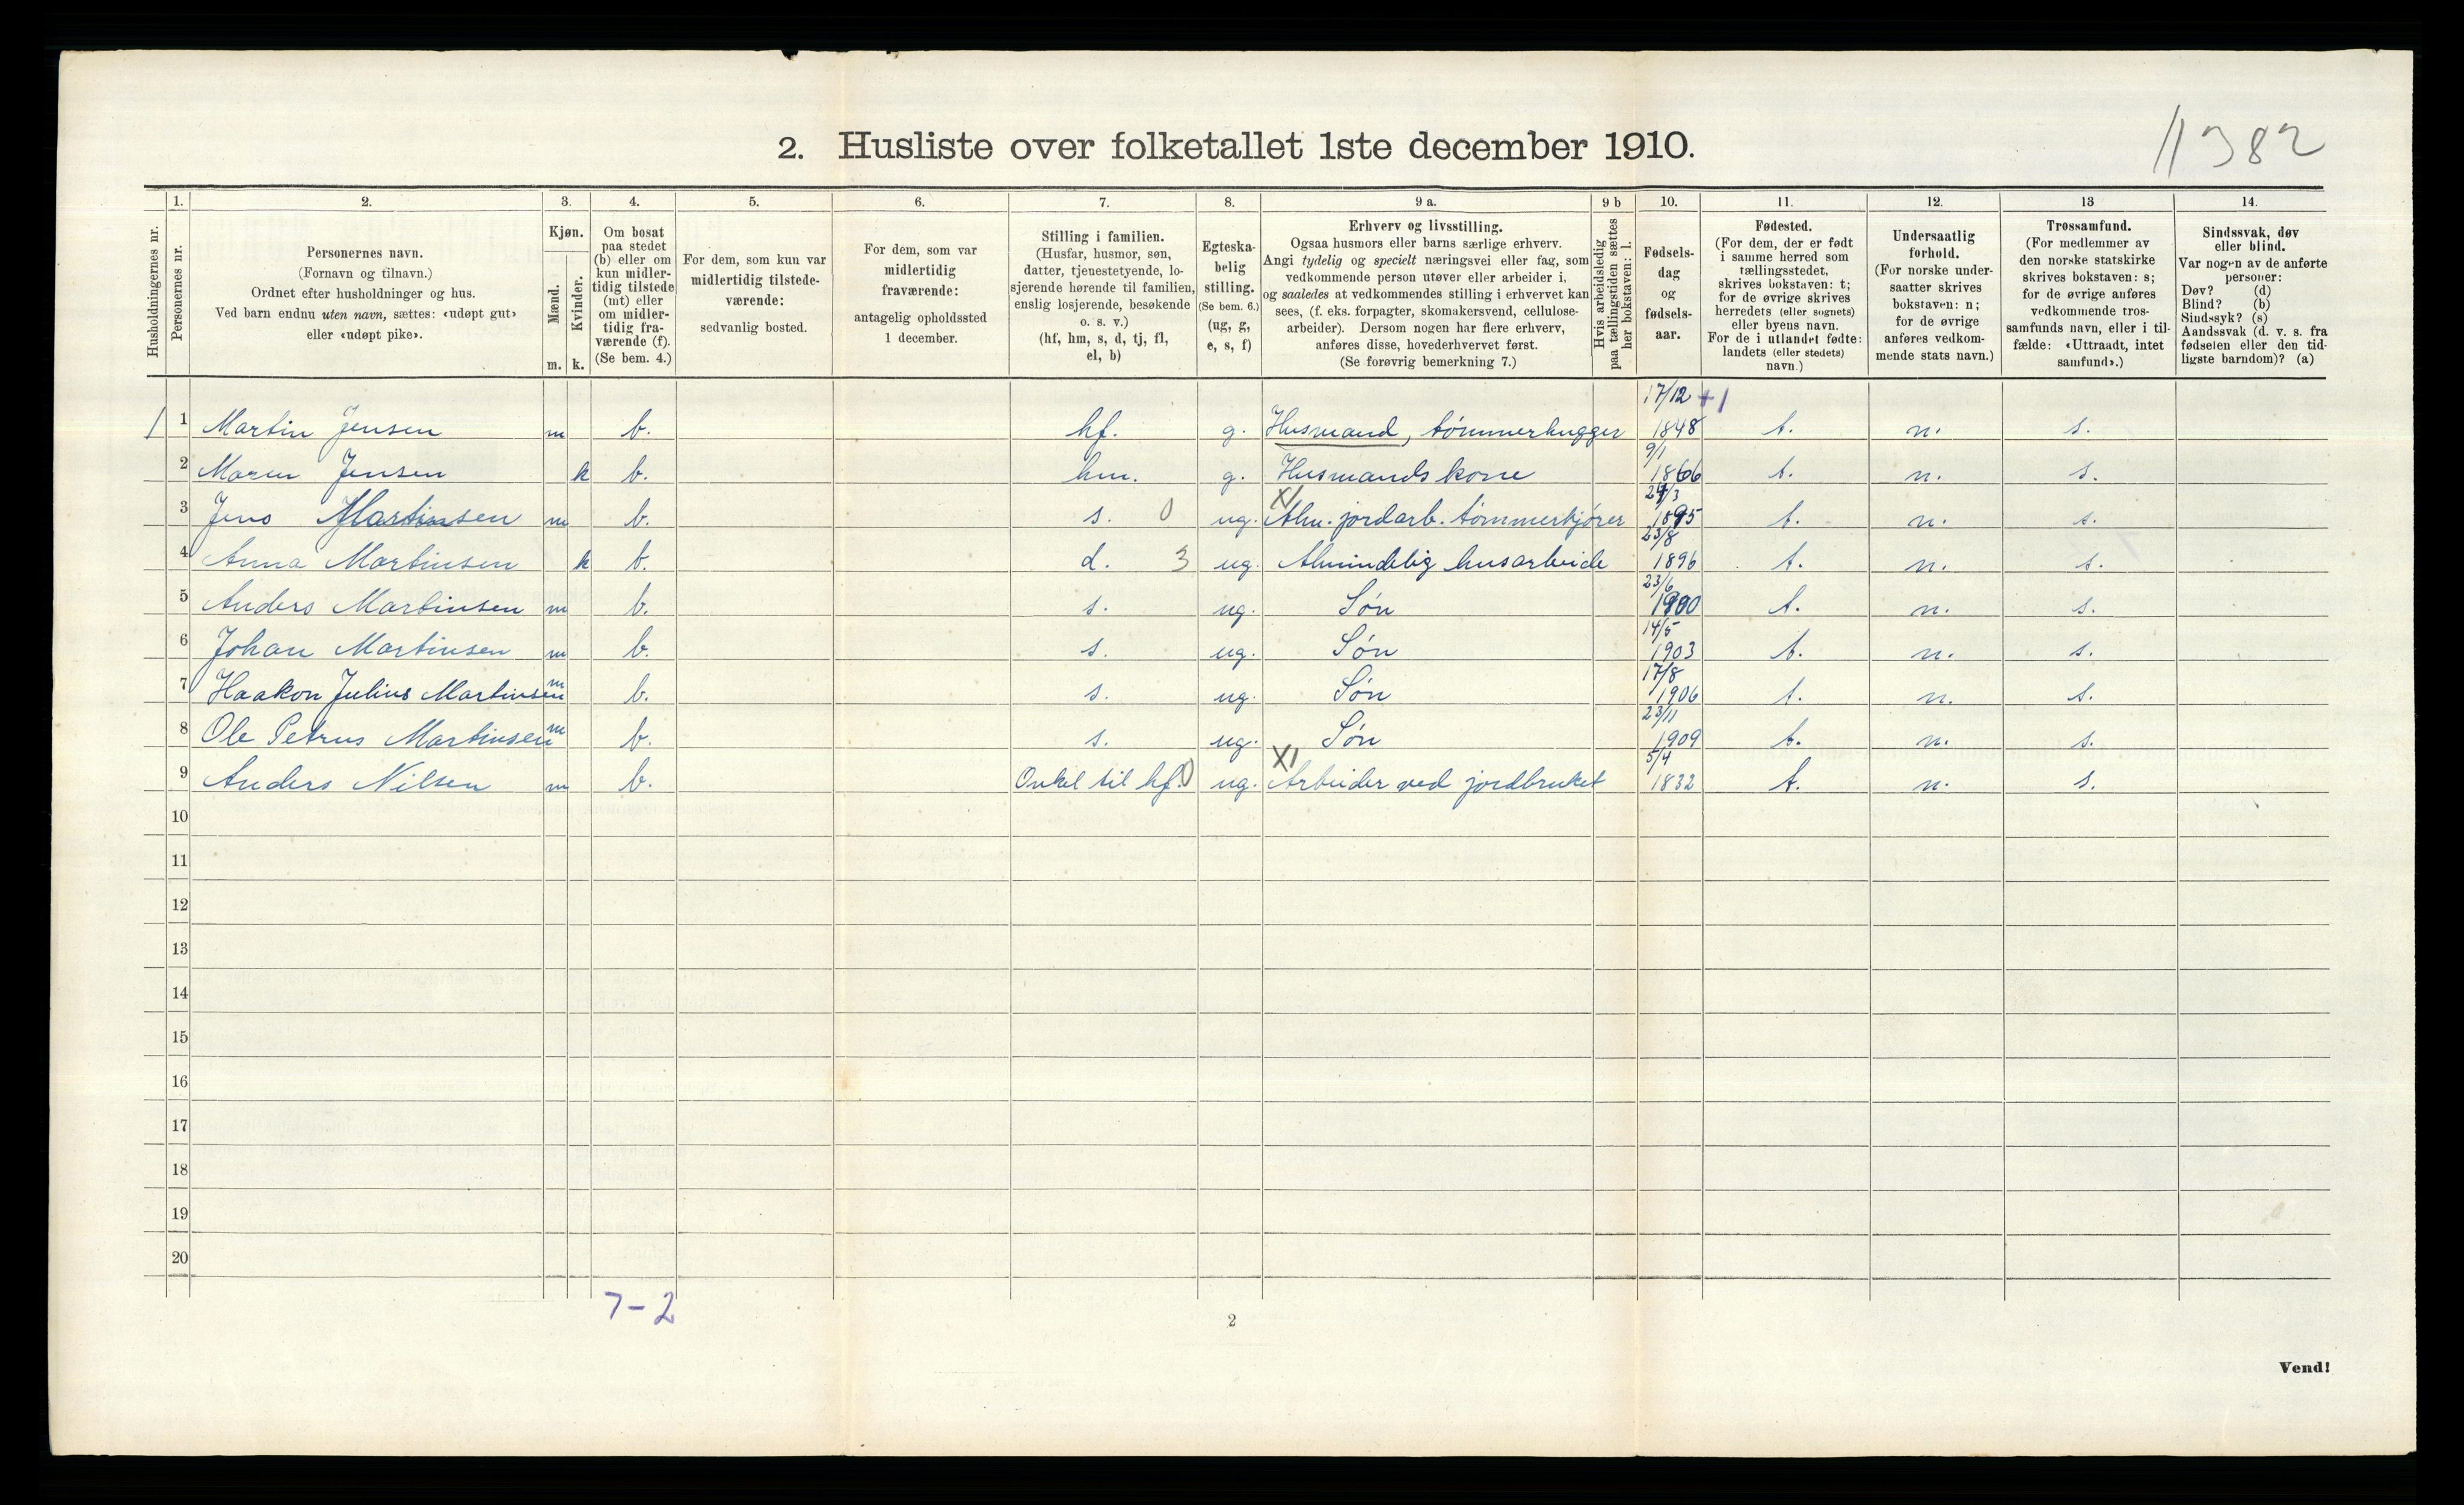 11382
2. Husliste over folketallet 1ste december 1910.
1. 2. 3. 4. 5. 6. 7. 8. 9 a. 9 b 10. 11. 12. 13 14.
Husholdningernes nr.
Personernes nr.
Personernes navn.
(Fornavn og tilnavn.)
Ordnet efter husholdninger og hus.
Ved barn endnu uten navn, sættes: «udøpt gut»
eller «udøpt pike».
Kjøn.
Mænd.
Kvinder.
m. k.
Om bosat
paa stedet
(b) eller om
kun midler-
tidig tilstede
(mt) eller
om midler-
tidig fra-
værende (f).
(Se bem. 4.)
For dem, som kun var
midlertidig tilstede-
værende:
sedvanlig bosted.
For dem, som var
midlertidig
fraværende:
antagelig opholdssted
1 december.
Stilling i familien.
(Husfar, husmor, søn,
datter, tjenestetyende, lo-
sjerende hørende til familien,
enslig losjerende, besøkende
o. s. v.)
(hf, hm, s, d, tj, fl,
el, b)
Egteska-
belig
stilling.
(Se bem. 6.)
(ug, g,
e, s, f)
Erhverv og livsstilling.
Ogsaa husmors eller barns særlige erhverv.
Angi tydelig og specielt næringsvei eller fag, som
vedkommende person utøver eller arbeider i,
og saaledes at vedkommendes stilling i erhvervet kan
sees, (f. eks. forpagter, skomakersvend, cellulose-
arbeider). Dersom nogen har flere erhverv,
anføres disse, hovederhvervet først.
(Se forøvrig bemerkning 7.)
Hvis arbeidsledig
paa tællingstiden sættes
her bokstaven: l.
Fødsels-
dag
og
fødsels-
aar.
Fødested.
(For dem, der er født
i samme herred som
tællingsstedet,
skrives bokstaven: t;
for de øvrige skrives
herredets (eller sognets)
eller byens navn.
For de i utlandet fødte:
landets (eller stedets)
navn.)
Undersaatlig
forhold.
(For norske under-
saatter skrives
bokstaven: n;
for de øvrige
anføres vedkom-
mende stats navn.)
Trossamfund.
(For medlemmer av
den norske statskirke
skrives bokstaven: s;
for de øvrige anføres
vedkommende tros-
samfunds navn, eller i til-
fælde: «Uttraadt, intet
samfund».)
Sindssvak, døv
eller blind.
Var nogen av de anførte
personer:
Døv? (d)
Blind? (b)
Sindssyk? (s)
Aandssvak (d. v. s. fra
fødselen eller den tid-
ligste barndom)? (a)
17/12 +1
1 1 Martin Jensen m b. hf. g. Husmand, tømmerhugger 1848 t. n. s.
9/1
2 Maren Jensen k b. hm. g. Husmandskone 1866 t. n. s.
XI 24/3
3 Jens Martinsen m b. s. 0 ug. Alm. jordarb. tømmerkjører 1895 t. n. s.
23/8
4 Anna Martinsen k b. d. 3 ug. Almindelig husarbeide 1896 t. n. s.
23/6
5 Anders Martinsen m b. s. ug. Søn 1900 t. n. s.
14/5
6 Johan Martinsen m b. s. ug. Søn 1903 t. n. s.
17/8
7 Haakon Julius Martinsen m b. s. ug. Søn 1906 t. n. s.
23/11
8 Ole Petrus Martinsen m b. s. ug. Søn 1909 t. n. s.
XI 5/4
9 Anders Nilsen m b. Onkel til hf. 0 ug. Arbeider ved jordbruket 1832 t. n. s.
10
11
12
13
14
15
16
17
18
19
20
7-2
2
Vend!